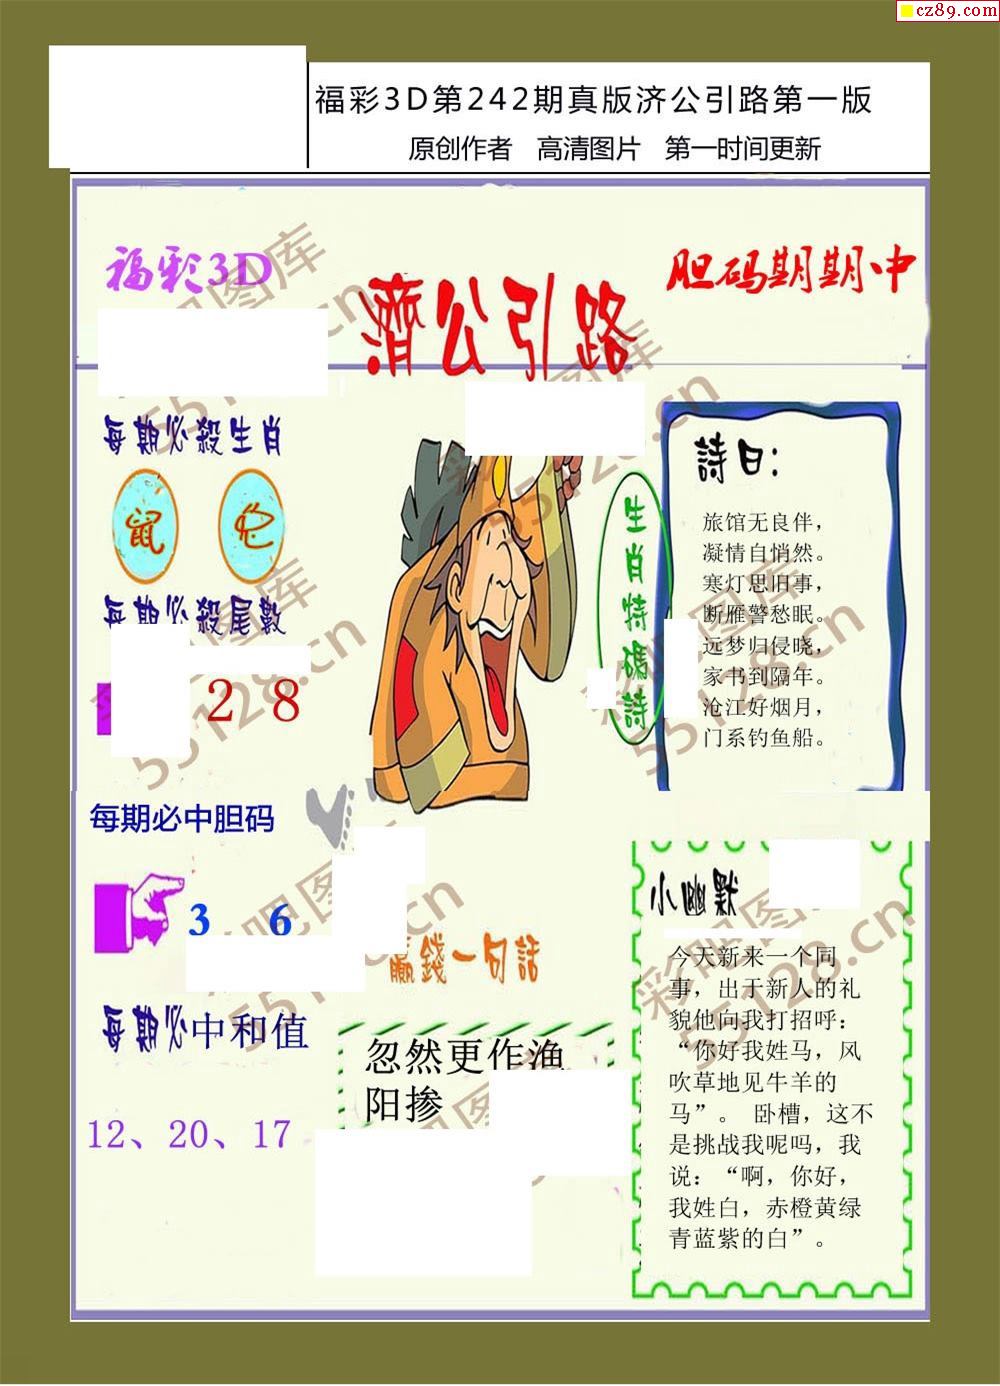 cz89.com
福彩3D第242期真版济公引路第一版
原创作者 高清图片 第一时间更新
福彩3D
濟公引路
胆码期期中
每期必殺生肖
鼠
兔
每期必殺尾數
2 8
每期必中胆码
3 6
每期必中和值
12、20、17
生肖特碼詩
詩曰：
旅馆无良伴，
凝情自悄然。
寒灯思旧事，
断雁警愁眠。
远梦归侵晓，
家书到隔年。
沧江好烟月，
门系钓鱼船。
赢錢一句話
忽然更作渔
阳掺
小幽默
今天新来一个同
事，出于新人的礼
貌他向我打招呼：
“你好我姓马，风
吹草地见牛羊的
马”。 卧槽，这不
是挑战我呢吗，我
说：“啊，你好，
我姓白，赤橙黄绿
青蓝紫的白”。
彩吧图库
55128.cn
彩吧图库
55128.cn
彩吧图库
55128.cn